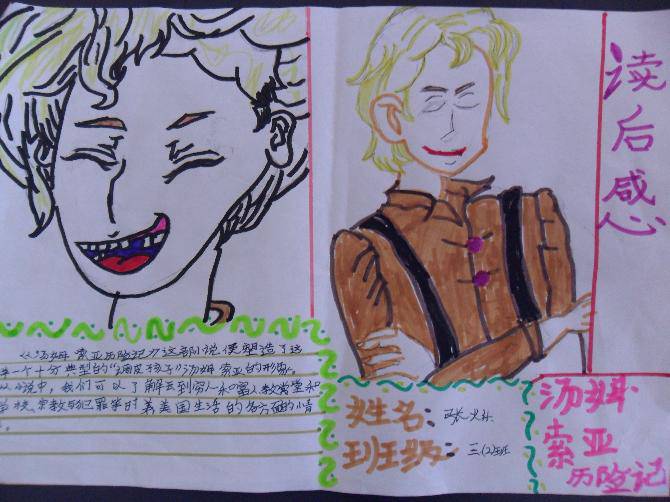 读后感
《汤姆 索亚历险记》这部小说便塑造了这
样一个十分典型的"顽皮孩子"汤姆 索亚的形象。
从小说中,我们可以了解去到穷人和富人教堂和
学校宗教与犯罪等时着美国生活的各方面的情
姓名:张
班级: 三(2)班
汤姆
索亚
历险记